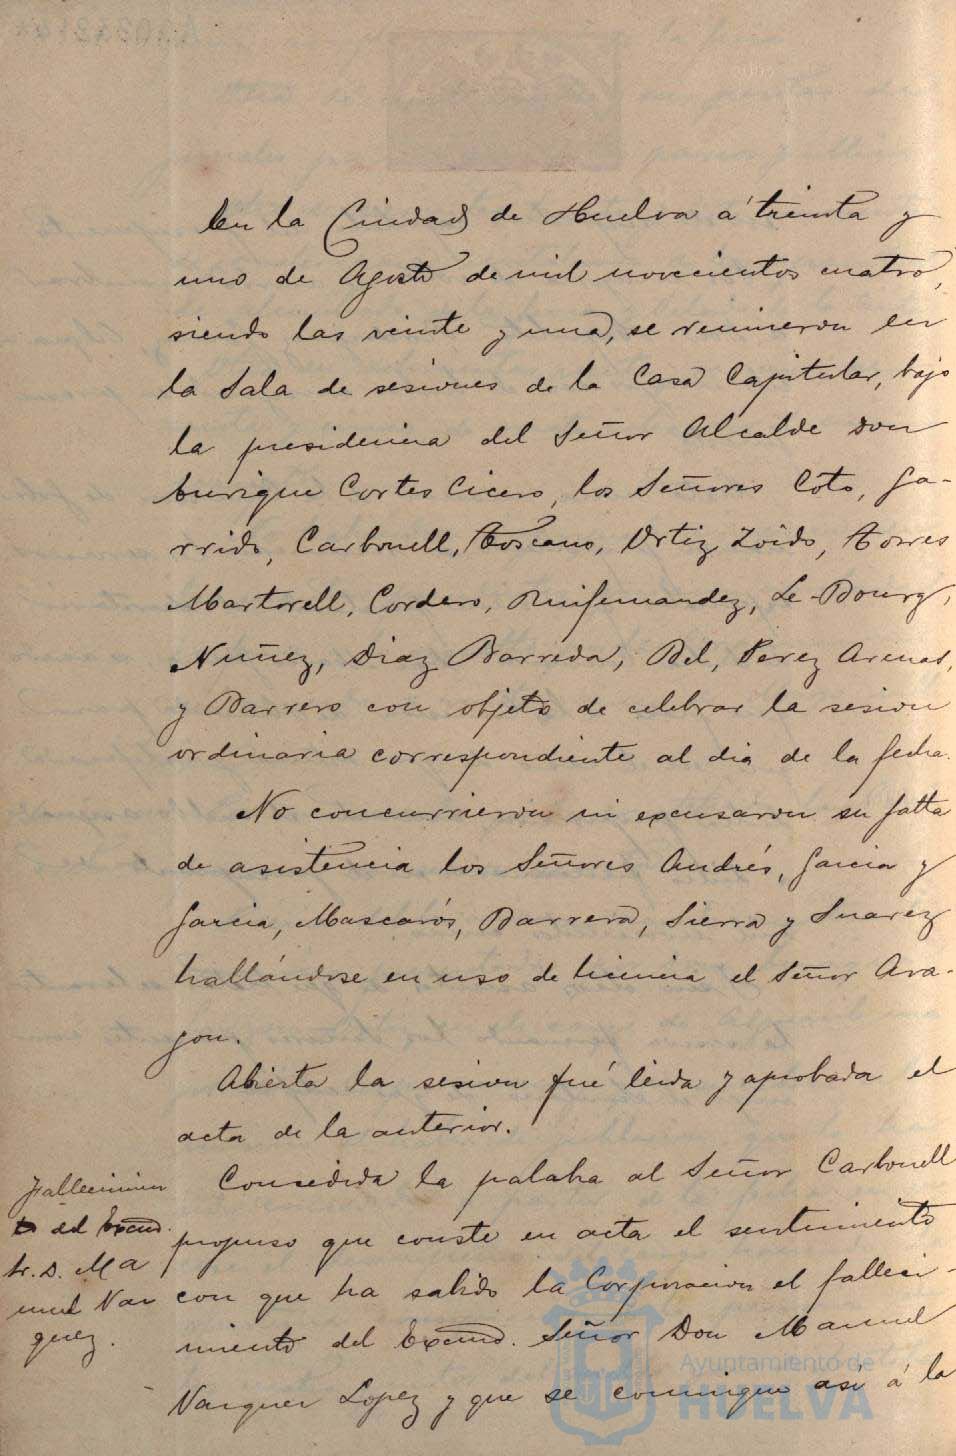 En la Ciudad de Huelva á treinta y
uno de Agosto de mil novecientos cuatro,
siendo las veinte y una, se reunieron en
la Sala de sesiones de la Casa Capitular, bajo
la presidencia del Señor Alcalde Don
Enrique Cortes Cicero, los Señores Coto, Ga-
rrido, Carbonell, Toscano, Ortiz, Zoido, Torres
Martorell, Cordero, Ruifernandez, Le-Bourg,
Nuñez, Diaz Barreda, Bel, Perez Arenas,
y Barrero con objeto de celebrar la sesion
ordinaria correspondiente al dia de la fecha.
No concurrieron ni excusaron su falta
de asistencia los Señores Andrés, Garcia y
Garcia, Mascarós, Barrera, Sierra y Suarez
hallándose en uso de licencia el Señor Ara-
gon.
Abierta la sesion fué leida y aprobada el
acta de la anterior.
Fallecimien
to del Excmo.
Sr. D. Ma
nuel Vaz
quez.
Concedida la palabra al Señor Carbonell
propuso que conste en acta el sentimiento
con que ha salido la Corporacion el falleci-
miento del Excmo. Señor Don Manuel
Vazquez Lopez y que se comunique así á la
Ayuntamiento de
HUELVA